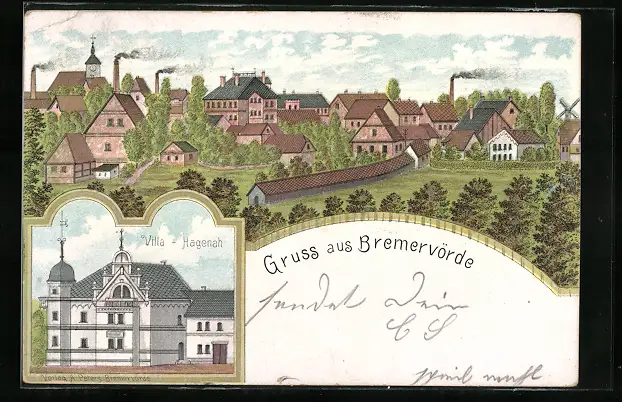 Villa - Hagenah
Gruss aus Bremervörde
sendet Dein
Verlag A. Peters, Bremervörde